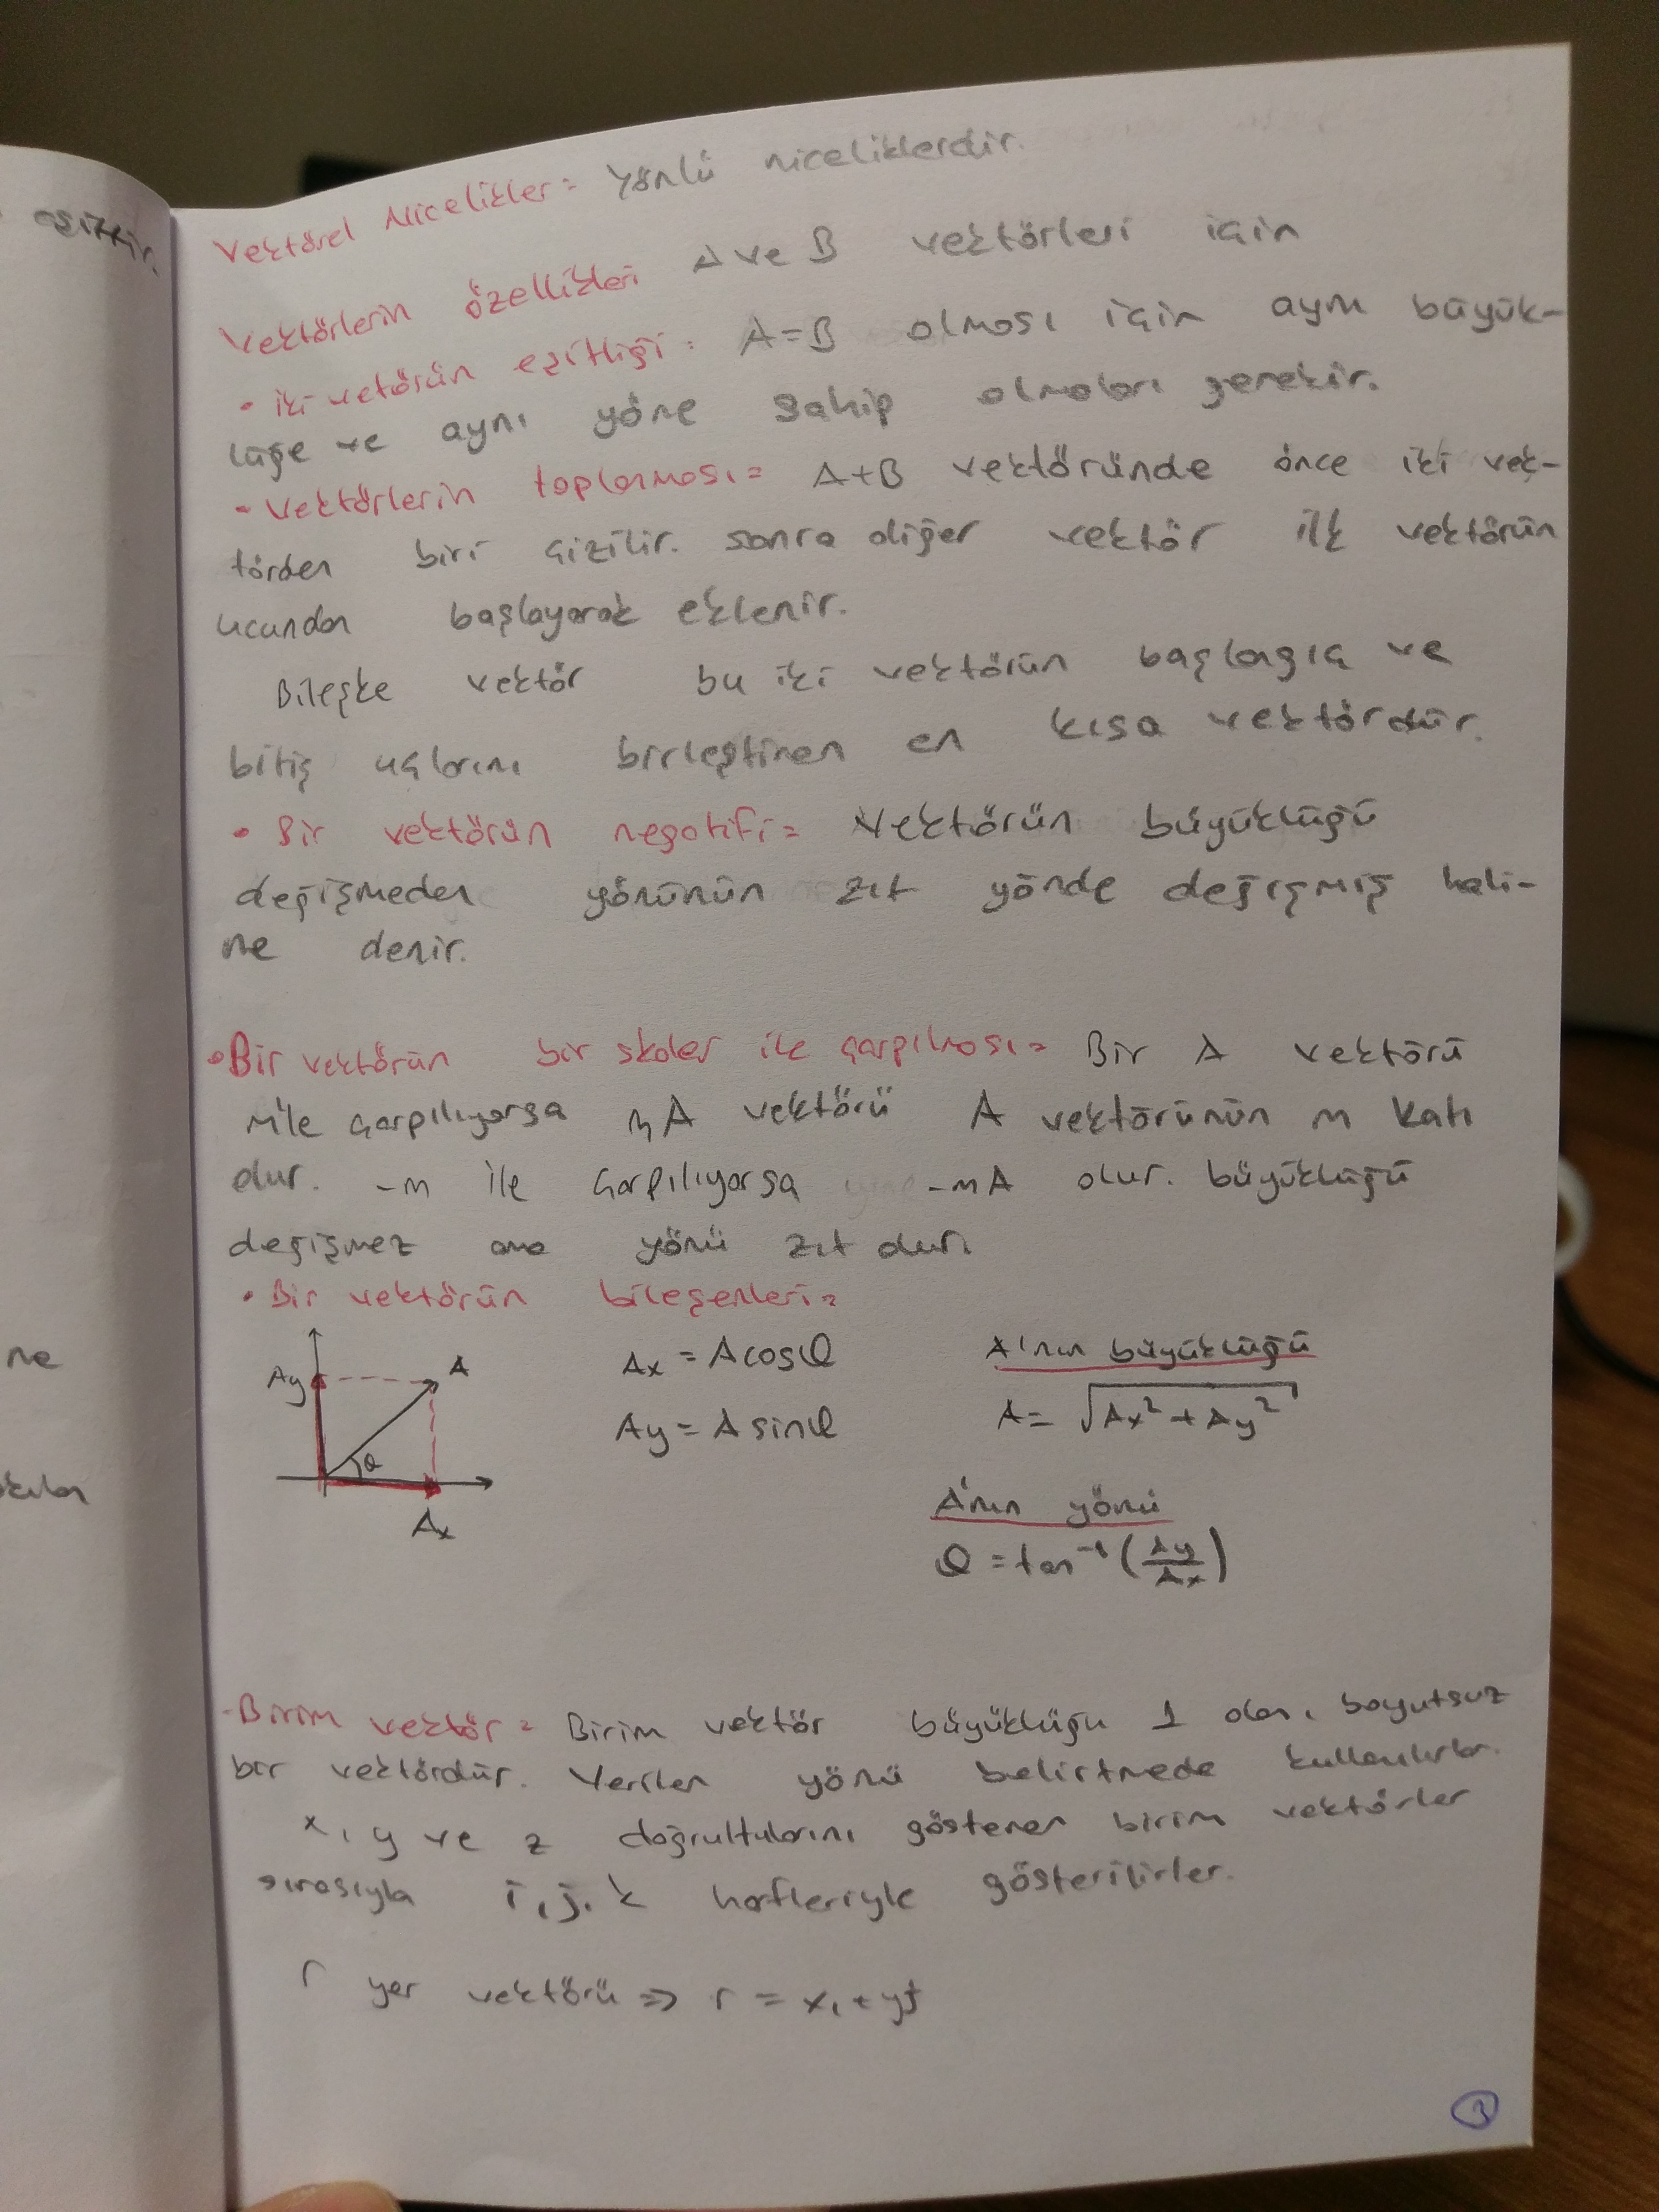 eşittir.
Vektörel Nicelikler = Yönlü niceliklerdir.
Vektörlerin özellikleri A ve B vektörleri için
• iki vetörün eşitliği: A=B olması için aynı büyük-
lüğe ve aynı yöne sahip olmaları gerekir.
• Vektörlerin toplanması = A+B vektöründe önce iki vek-
törden biri çizilir. sonra diğer vektör ilk vektörün
ucundan başlayarak eklenir.
Bileşke vektör bu iki vektörün başlangıç ve
bitiş uçlarını birleştiren en kısa vektördür.
• Bir vektörün negatifi = Vektörün büyüklüğü
değişmeden yönünün zıt yönde değişmiş hali-
ne denir.
• Bir vektörün bir skaler ile çarpılması = Bir A vektörü
m'le çarpılıyorsa mA vektörü A vektörünün m katı
olur. -m ile çarpılıyorsa -mA olur. büyüklüğü
değişmez ama yönü zıt olur.
• Bir vektörün bileşenleri =
ne
Ay A
θ
Ax
Ax = A cosθ
Ay = A sinθ
A'nın büyüklüğü
A = √Ax² + Ay²
A'nın yönü
θ = tan⁻¹ (Ay/Ax)
• Birim vektör = Birim vektör büyüklüğü 1 olan, boyutsuz
bir vektördür. Verilen yönü belirtmede kullanılırlar.
x, y ve z doğrultularını gösteren birim vektörler
sırasıyla i, j, k harfleriyle gösterilirler.
r yer vektörü => r = xi + yj
3